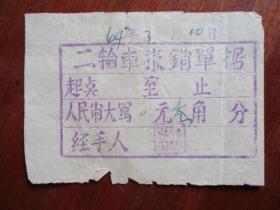 64年3月10日
二轮車报銷單据
起点 至 止
人民币大写 0元叁角 分
経手人